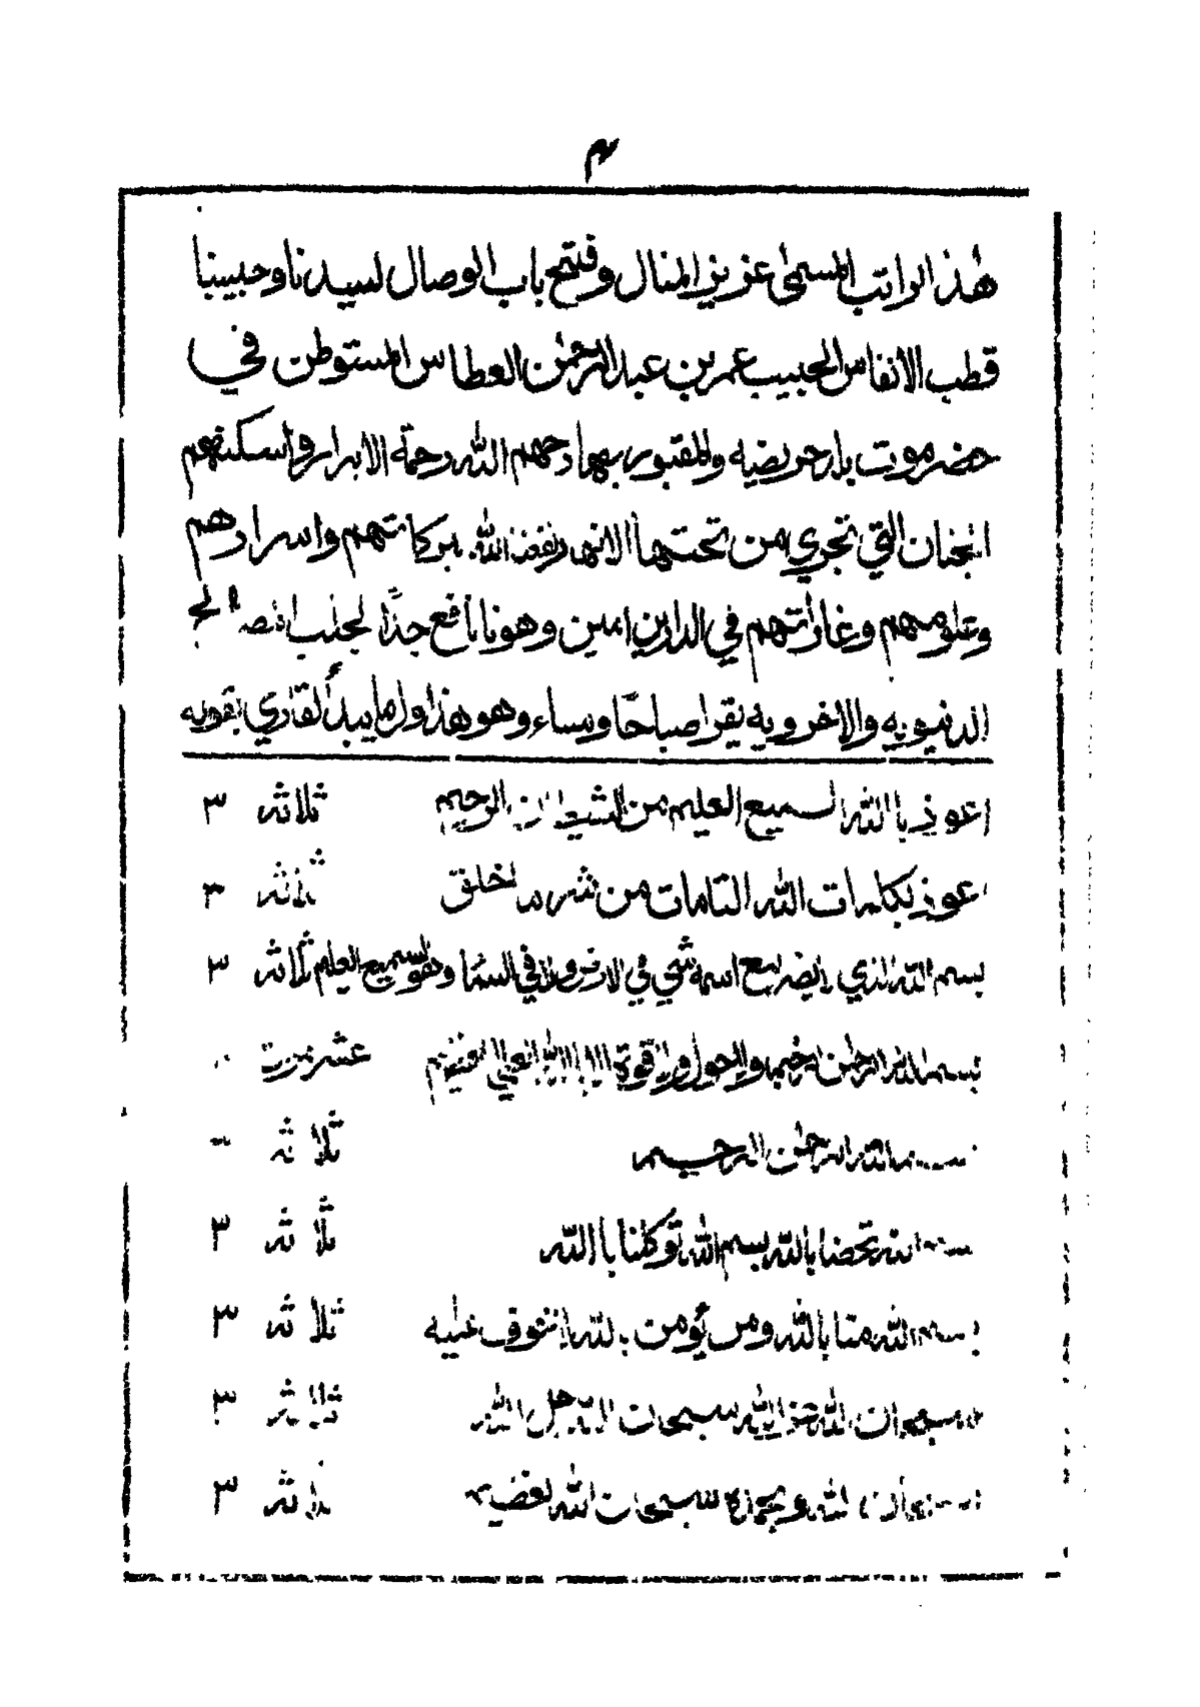 ٣
هذا الراتب المسمى عزيز المنال وفتح باب الوصال لسيدنا وحبيبنا
قطب الانفاس الحبيب عمر بن عبد الرحمٰن العطاس المستوطن في
حضرموت بلد حريضيه والمقبور بها رحمهم اللّه رحمة الابرار واسكنهم
الجنان التي تجري من تحتها الانهار ونفعنا اللّه بركاتهم واسرارهم
وعلومهم وغاراتهم في الدارين امين وهو نافع جدًّا لجلب
الدنيويه والاخرويه يقرا صباحًا ومساء وهو هذا اول ما يبدأ القاري بقوله
اعوذ باللّه السميع العليم من الشيطان الرجيم ثلاثه ٣
اعوذ بكلمات اللّه التامات من شر ما خلق ثلاثه ٣
بسم اللّه الذي لايضر مع اسمه شي في الارض ولا في السما وهو السميع العليم ثلاثه ٣
بسم اللّه الرحمٰن الرحيم ولاحول ولا قوة الا باللّه العلي العظيم عشر مرت
بسم اللّه الرحمٰن الرحيم ثلاثه ٣
بسم اللّه تحصنا باللّه بسم اللّه توكلنا باللّه ثلاثه ٣
بسم اللّه منا باللّه ومن يؤمن باللّه لا خوف عليه ثلاثه ٣
سبحان اللّه عز اللّه سبحان اللّه جل اللّه ثلاثه ٣
سبحان اللّه وبحمده سبحان اللّه العضيم ثلاثه ٣